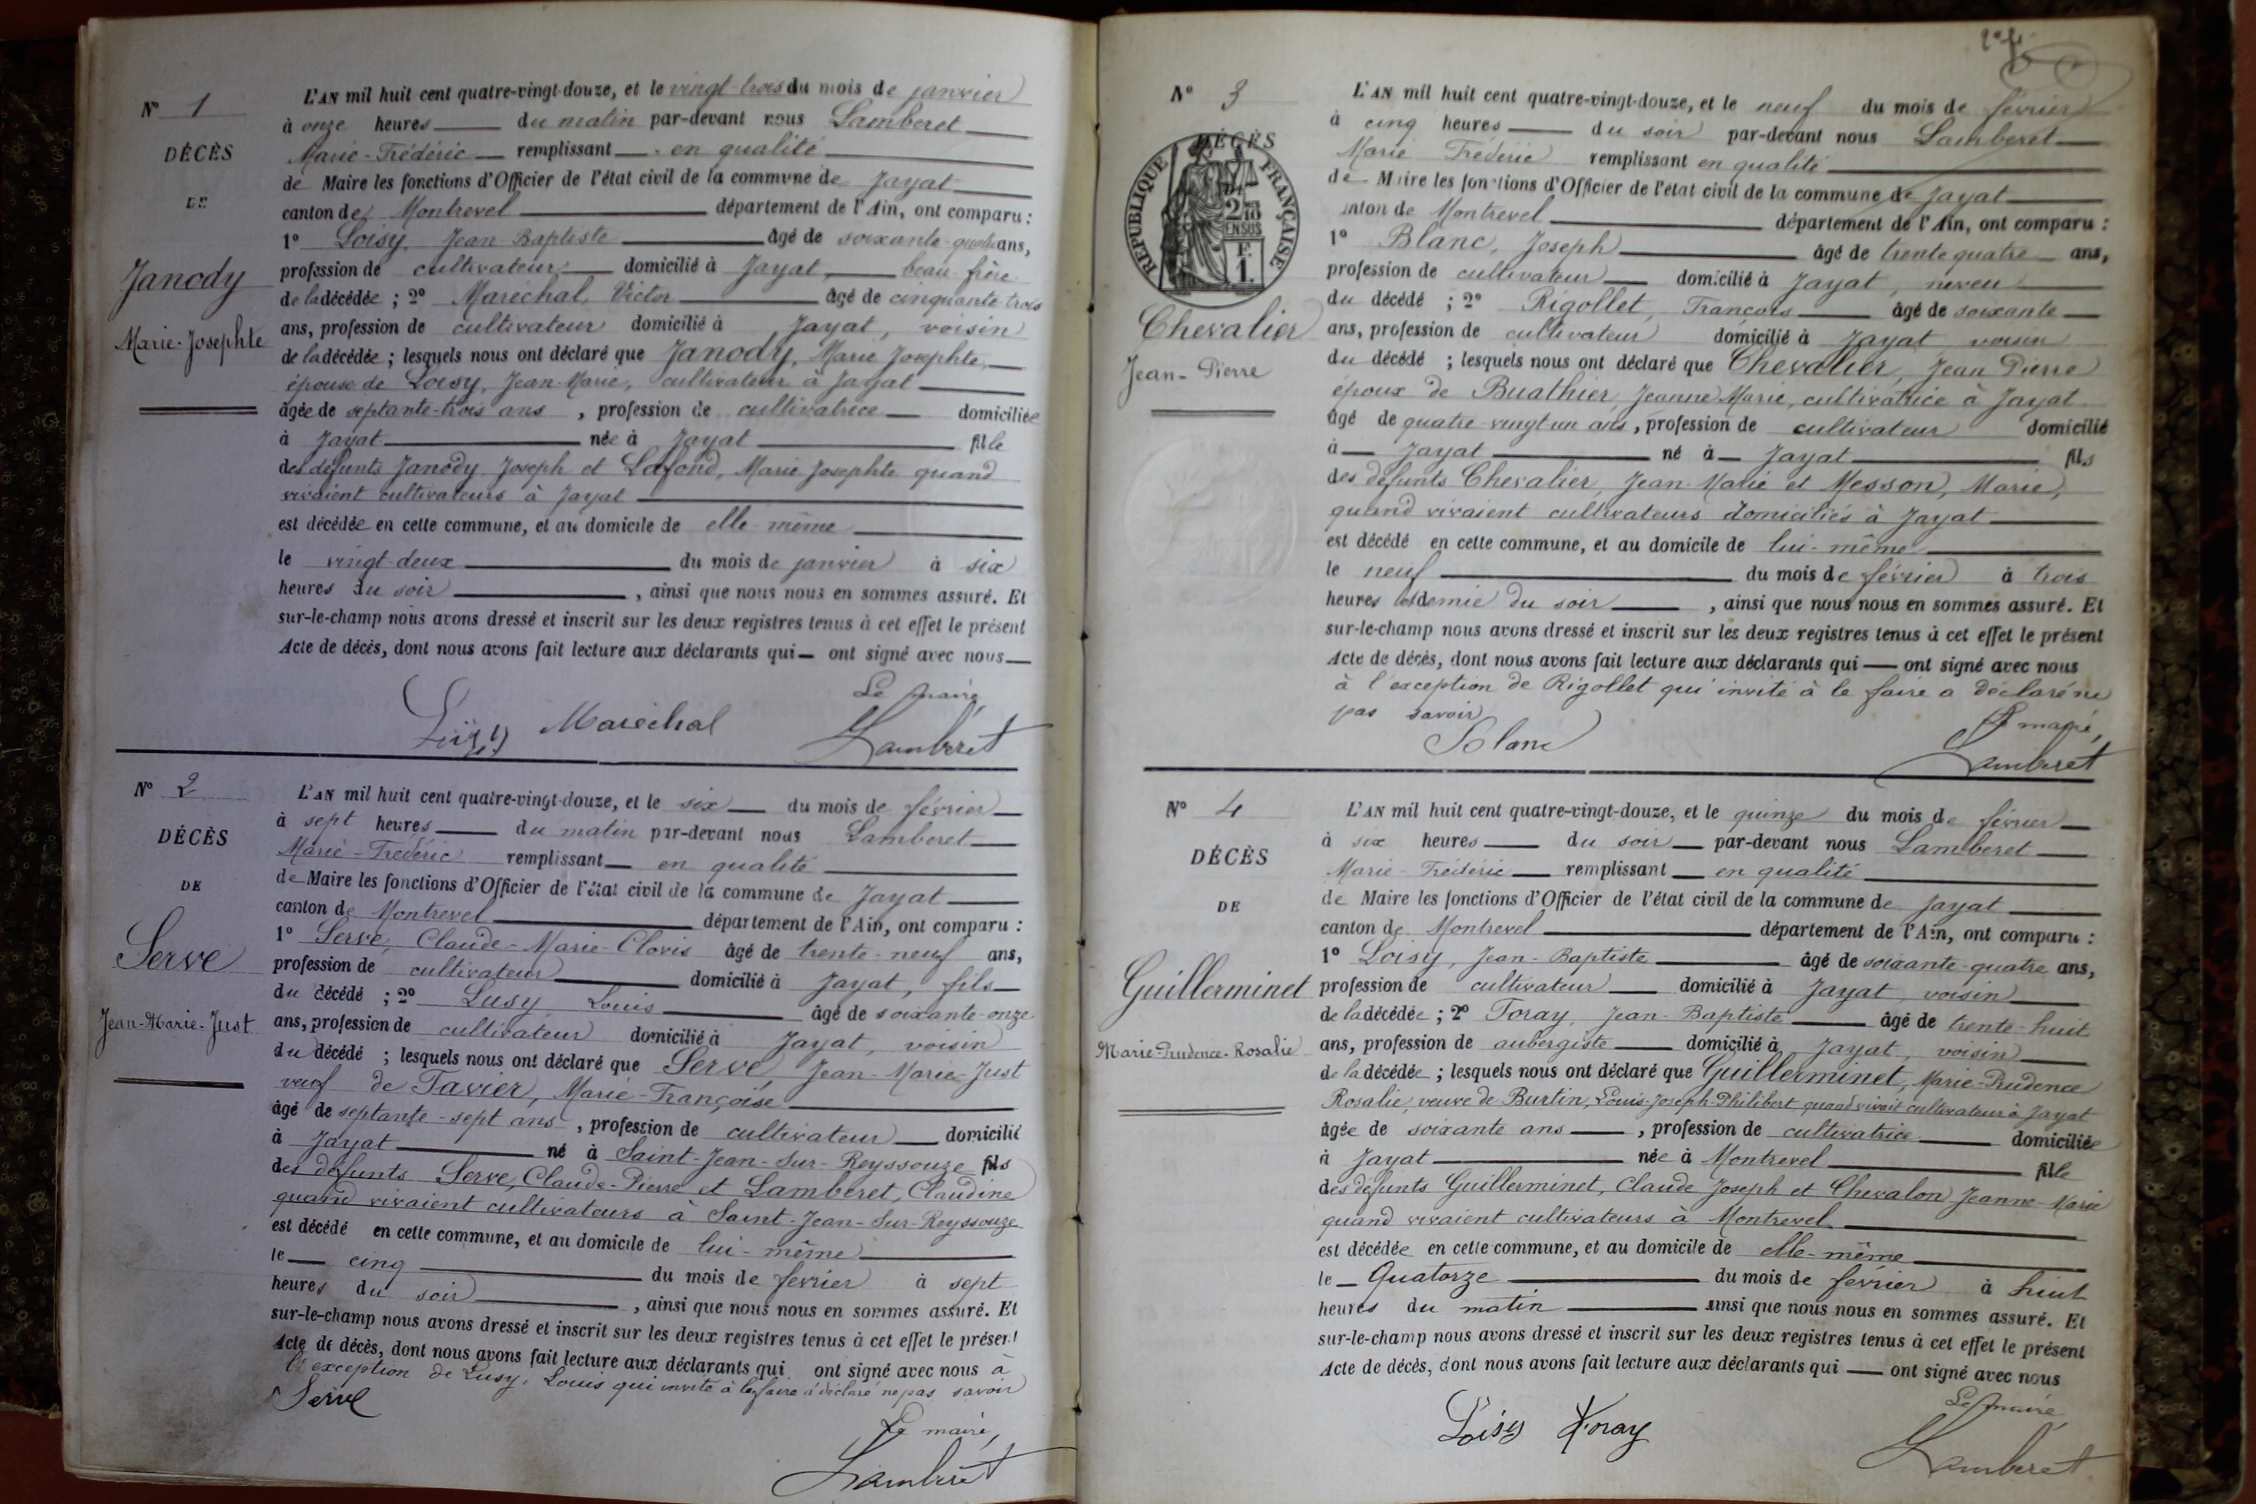 N° 1
DÉCÈS
DE
Janody
Marie-Josephte
L'AN mil huit cent quatre-vingt-douze, et le vingt-trois du mois de janvier
à onze heures du matin par-devant nous Lamberet
Marie-Frédéric remplissant en qualité
de Maire les fonctions d'Officier de l'état civil de la commune de Jayat
canton de Montrevel département de l'Ain, ont comparu :
1° Loisy, Jean-Baptiste âgé de soixante-quatre ans,
profession de cultivateur domicilié à Jayat, beau-frère
de la décédée ; 2° Maréchal, Victor âgé de cinquante-trois
ans, profession de cultivateur domicilié à Jayat, voisin
de la décédée ; lesquels nous ont déclaré que Janody, Marie Josephte,
épouse de Loisy, Jean-Marie, cultivateur à Jayat
âgée de septante-trois ans, profession de cultivatrice domiciliée
à Jayat née à Jayat fille
des défunts Janody Joseph et Lafond, Marie Josephte quand
vivaient cultivateurs à Jayat
est décédée en cette commune, et au domicile de elle-même
le vingt-deux du mois de janvier à six
heures du soir, ainsi que nous nous en sommes assuré. Et
sur-le-champ nous avons dressé et inscrit sur les deux registres tenus à cet effet le présent
Acte de décès, dont nous avons fait lecture aux déclarants qui ont signé avec nous
Le maire
Loisy Maréchal Lamberet
N° 2
DÉCÈS
DE
Serve
Jean-Marie-Just
L'AN mil huit cent quatre-vingt-douze, et le six du mois de février
à sept heures du matin par-devant nous Lamberet
Marie-Frédéric remplissant en qualité
de Maire les fonctions d'Officier de l'état civil de la commune de Jayat
canton de Montrevel département de l'Ain, ont comparu :
1° Serve, Claude-Marie-Clovis âgé de trente-neuf ans,
profession de cultivateur domicilié à Jayat, fils
du décédé ; 2° Lusy Louis âgé de soixante-onze
ans, profession de cultivateur domicilié à Jayat, voisin
du décédé ; lesquels nous ont déclaré que Serve, Jean-Marie-Just
veuf de Tavier, Marie-Françoise
âgé de septante-sept ans, profession de cultivateur domicilié
à Jayat né à Saint-Jean-Sur-Reyssouze fils
des défunts Serve, Claude-Pierre et Lamberet, Claudine
quand vivaient cultivateurs à Saint-Jean-Sur-Reyssouze
est décédé en cette commune, et au domicile de lui-même
le cinq du mois de février à sept
heures du soir, ainsi que nous nous en sommes assuré. Et
sur-le-champ nous avons dressé et inscrit sur les deux registres tenus à cet effet le présent
Acte de décès, dont nous avons fait lecture aux déclarants qui ont signé avec nous à
l'exception de Lusy, Louis qui invité à le faire a déclaré ne pas savoir
Serve
Le maire,
Lamberet
N° 3
DÉCÈS
RÉPUBLIQUE FRANÇAISE
2/10 EN SUS
F. 1.
Chevalier
Jean-Pierre
L'AN mil huit cent quatre-vingt-douze, et le neuf du mois de février
à cinq heures du soir par-devant nous Lamberet
Marie Frédéric remplissant en qualité
de Maire les fonctions d'Officier de l'état civil de la commune de Jayat
canton de Montrevel département de l'Ain, ont comparu :
1° Blanc, Joseph âgé de trente quatre ans,
profession de cultivateur domicilié à Jayat, neveu
du décédé ; 2° Rigollet, François âgé de soixante
ans, profession de cultivateur domicilié à Jayat voisin
du décédé ; lesquels nous ont déclaré que Chevalier, Jean Pierre
époux de Buathier Jeanne Marie, cultivatrice à Jayat
âgé de quatre-vingt-un ans, profession de cultivateur domicilié
à Jayat né à Jayat fils
des défunts Chevalier, Jean-Marie et Messon, Marie,
quand vivaient cultivateurs domiciliés à Jayat
est décédé en cette commune, et au domicile de lui-même
le neuf du mois de février à trois
heures et demie du soir, ainsi que nous nous en sommes assuré. Et
sur-le-champ nous avons dressé et inscrit sur les deux registres tenus à cet effet le présent
Acte de décès, dont nous avons fait lecture aux déclarants qui ont signé avec nous
à l'exception de Rigollet qui invité à le faire a déclaré ne
pas savoir
Le maire,
Blanc Lamberet
N° 4
DÉCÈS
DE
Guillerminet
Marie-Prudence-Rosalie
L'AN mil huit cent quatre-vingt-douze, et le quinze du mois de février
à six heures du soir par-devant nous Lamberet
Marie-Frédéric remplissant en qualité
de Maire les fonctions d'Officier de l'état civil de la commune de Jayat
canton de Montrevel département de l'Ain, ont comparu :
1° Loisy, Jean-Baptiste âgé de soixante-quatre ans,
profession de cultivateur domicilié à Jayat voisin
de la décédée ; 2° Foray, Jean-Baptiste âgé de trente-huit
ans, profession de aubergiste domicilié à Jayat, voisin
de la décédée ; lesquels nous ont déclaré que Guillerminet, Marie-Prudence
Rosalie, veuve de Burtin, Louis-Joseph-Philibert quand vivait cultivateur à Jayat
âgée de soixante ans, profession de cultivatrice domiciliée
à Jayat née à Montrevel fille
des défunts Guillerminet, Claude Joseph et Chevalon Jeanne-Marie
quand vivaient cultivateurs à Montrevel
est décédée en cette commune, et au domicile de elle-même
le Quatorze du mois de février à huit
heures du matin ainsi que nous nous en sommes assuré. Et
sur-le-champ nous avons dressé et inscrit sur les deux registres tenus à cet effet le présent
Acte de décès, dont nous avons fait lecture aux déclarants qui ont signé avec nous
Le maire
Loisy Foray Lamberet